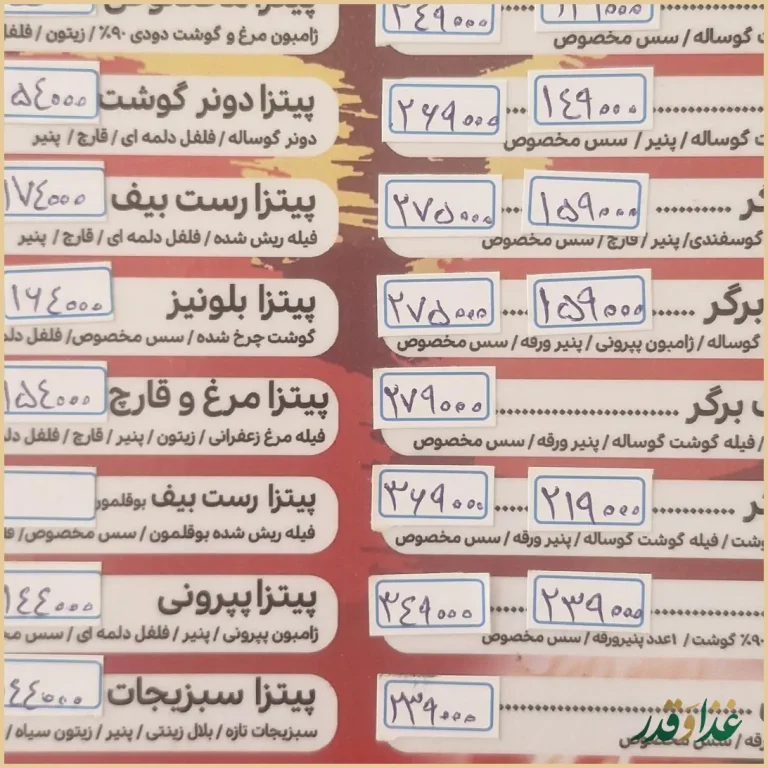 ۲۴۹۰۰۰
گوساله / سس مخصوص
۱۴۹۰۰۰
۲۶۹۰۰۰
گوساله / پنیر / سس مخصوص
۱۵۹۰۰۰
۲۷۵۰۰۰
گوسفندی / پنیر / قارچ / سس مخصوص
برگر
۱۵۹۰۰۰
۲۷۵۰۰۰
گوساله / ژامبون پپرونی / پنیر ورقه / سس مخصوص
برگر
۲۷۹۰۰۰
/ فیله گوشت گوساله / پنیر ورقه / سس مخصوص
۲۱۹۰۰۰
۳۶۹۰۰۰
/ فیله گوشت گوساله / پنیر ورقه / سس مخصوص
۲۳۹۰۰۰
۳۴۹۰۰۰
۹۰٪ گوشت / ۱عدد پنیرورقه / سس مخصوص
۲۳۹۰۰۰
سس مخصوص
ژامبون مرغ و گوشت دودی ۹۰٪ / زیتون /
پیتزا دونر گوشت
۵۴۰۰۰
دونر گوساله / فلفل دلمه ای / قارچ / پنیر
پیتزا رست بیف
۱۷۴۰۰۰
فیله ریش شده / فلفل دلمه ای / قارچ / پنیر
پیتزا بلونیز
۱۶۴۰۰۰
گوشت چرخ شده / سس مخصوص / فلفل
پیتزا مرغ و قارچ
۱۵۴۰۰۰
فیله مرغ زعفرانی / زیتون / پنیر / قارچ / فلفل
پیتزا رست بیف بوقلمون
فیله ریش شده بوقلمون / سس مخصوص /
پیتزا پپرونی
۱۴۴۰۰۰
ژامبون پپرونی / پنیر / فلفل دلمه ای / سس
پیتزا سبزیجات
۴۴۰۰۰
سبزیجات تازه / بلال زینتی / پنیر / زیتون سیاه /
غذا و قدر